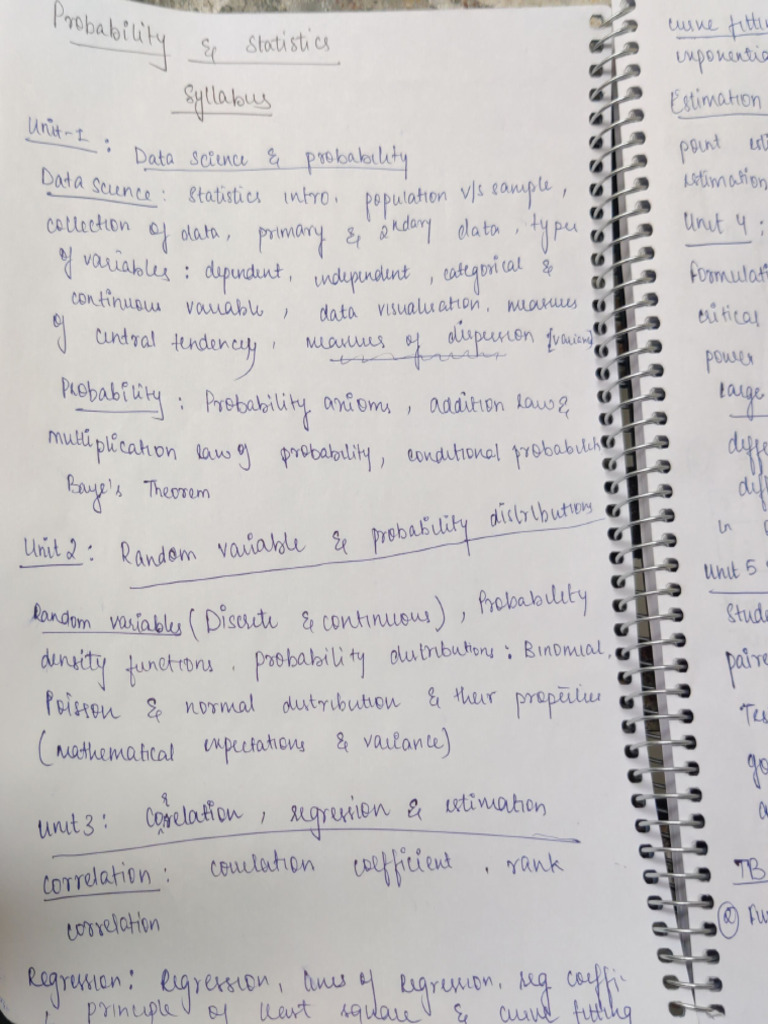 Probability & Statistics
Syllabus
Unit-1 : Data science & probability
Data science : Statistics intro, population v/s sample,
collection of data, primary & 2ndary data, types
of variables : dependent, independent, categorical &
continuous variable, data visualisation, measures
of central tendency, measures of dispersion [varians
Probability : Probability axioms, addition law &
multiplication law of probability, conditional probability
Baye's Theorem
Unit 2 : Random variable & probability distributions
Random variables (Discrete & continuous), Probability
density functions, probability distributions : Binomial,
Poisson & normal distribution & their properties
(mathematical expectations & variance)
Unit 3 : correlation, regression & estimation
correlation : correlation coefficient, rank
correlation
Regression : Regression, lines of regression, reg coeffi-
, principle of least square & curve fitting
curve fitti
exponentia
Estimation
point esti
estimation
Unit 4 :
Formulati
critical
power
large
diffe
in
Unit 5
Stude
paire
Tes
go
TB
②